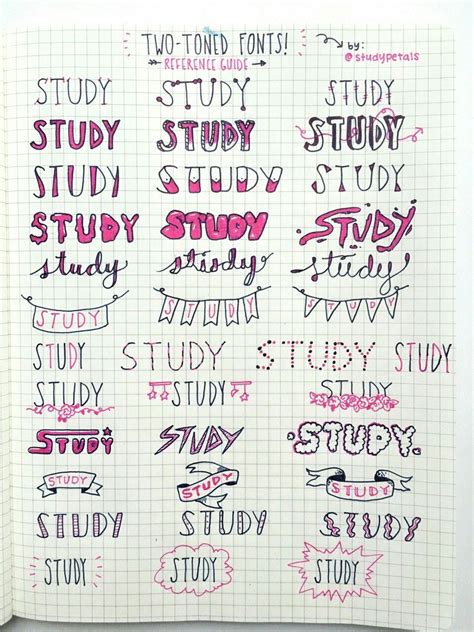 TWO-TONED FONTS!
REFERENCE GUIDE
by:
@studypetals
STUDY STUDY STUDY
STUDY STUDY STUDY
STUDY STUDY STUDY
STUDY STUDY STUDY
study study study
STUDY STUDY STUDY
STUDY STUDY STUDY STUDY
STUDY STUDY STUDY
STUDY STUDY STUDY
STUDY STUDY STUDY
STUDY STUDY STUDY
STUDY STUDY STUDY